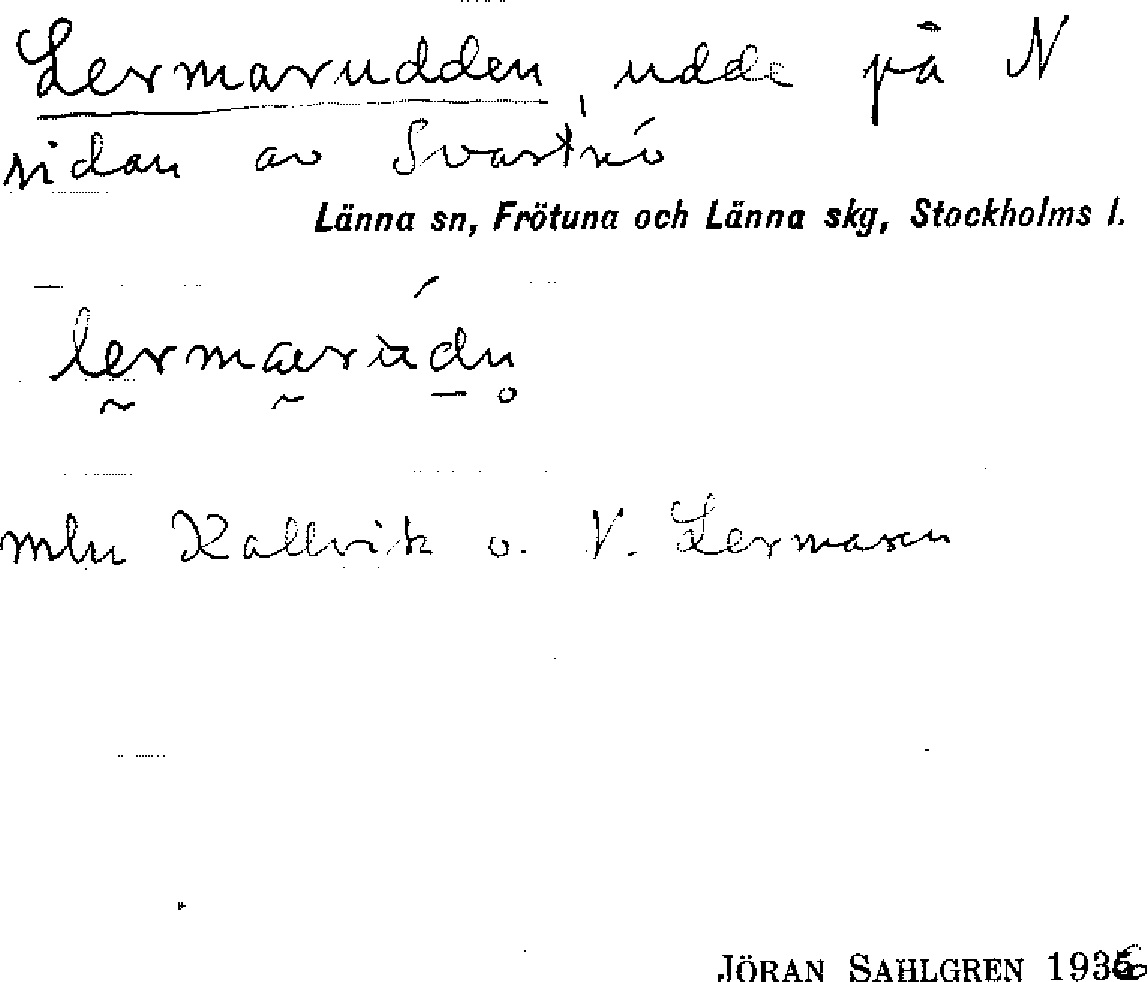 Lermarudden, udde på N
sidan av Svartnö
Länna sn, Frötuna och Länna skg, Stockholms l.
lermaru̇dn̥
mln Kallvik o. V. Lermaren
JÖRAN SAHLGREN 1936